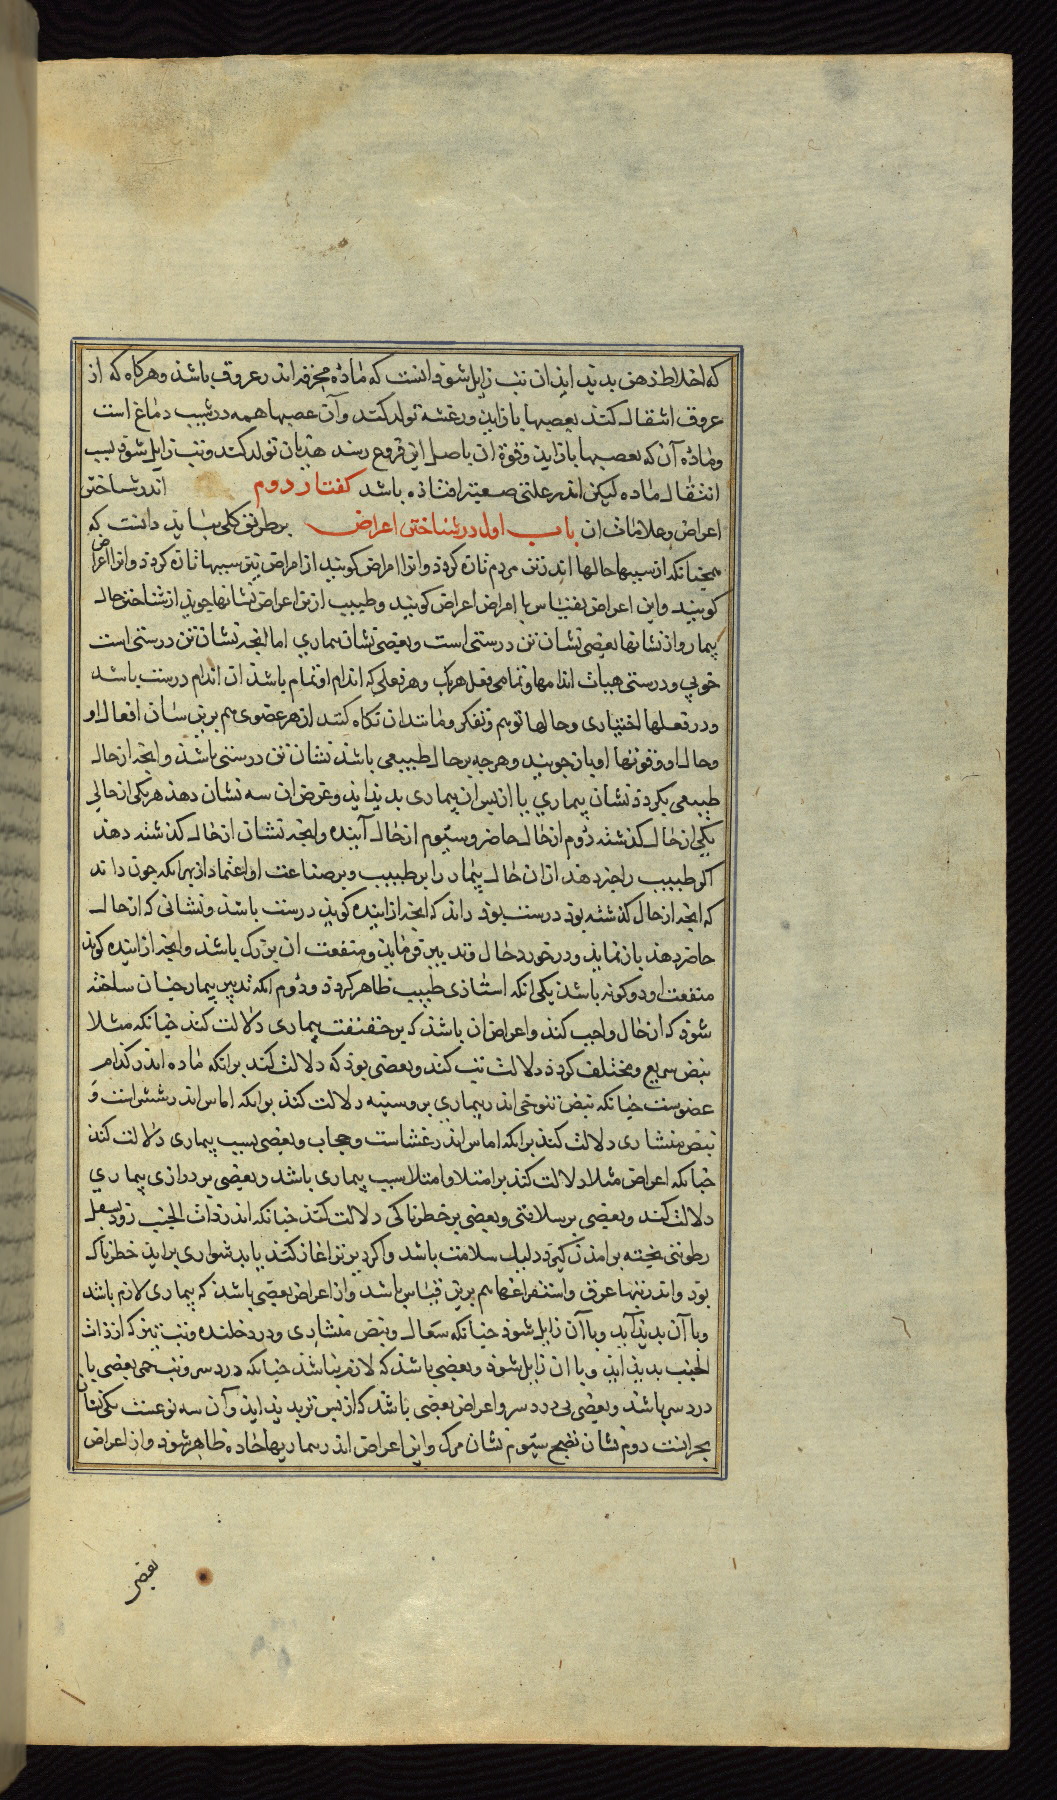 که اختلاط ذهن بدید اید ان تب زایل شود انست که ماده محرقه اندر عروق باشد و هرکاه که از
عروق انتقال کند بعصبها باز اید و رعشه تولد کند و آن عصبها همه در شیب دماغ است
و ماده آن که بعصبها باز اید و قوة ان باصل این فروع رسد هذیان تولد کند و تب زایل شود بسبب
انتقال ماده لیکن اندر علتی صعبتر افتاذه باشد کفتار دوم اندر شناختن
اعراض و علامات ان باب اول در شناختن اعراض بر طریق کلی بباید دانست که
همچنانکه از سببها حالها اندر تن مردم تازه کردد و انرا امراض کویند از امراض نیز سببها تازه کردد و انرا اعراض
کویند و این اعراض بقیاس با امراض اعراض کویند و طبیب ازین اعراض نشانها جوید از شناختن حال
بیمار و از نشانها بعضی نشان تن درستی است و بعضی نشان بیماری اما انچه نشان تن درستی است
خوبی و درستی هیات اندامها و تمامی فعل هر یک و هر فعلی که اندام او تمام باشد ان اندام درست باشد
و در فعلها اختیاری و حالها توهم و تفکر و مانند ان نکاه کنند از هر عضوی هم برین سان افعال او
و حال او و قوتها او باز جویند و هرچه بر حال طبیعی باشد نشان تن درستی باشد و انچه از حال
طبیعی بکردد نشان بیماری یا از پس ان بیماری بدید اید و غرض ان سه نشان دهد هر یکی از حالی
یکی از حال کذشته دوم از حال حاضر و سیوم از حال آینده و انچه نشان از حال کذشته دهد
اکر طبیب را خبر دهد از ان حال بیمار را بر طبیب و بر صناعت او اعتماد از بهر انکه چون داند
که انچه از حال کذشته بود درست بود داند که انچه از اینده کوید درست باشد و نشانی که از حال
حاضر دهد باز نماید و در خورد حال و تدبیر فرماید و منفعت ان بزرک باشد و انچه از اینده کوید
منفعت او دو کونه باشد یکی انکه استاذی طبیب ظاهر کردد و دوم انکه تدبیر بیمار چنان ساخته
شود که ان حال واجب کند و اعراض ان باشد که بر حقیقت بیماری دلالت کند چنانکه مثلا
نبض سریع و مختلف کردد دلالت تب کند و بعضی بود که دلالت کند برانکه ماده اندر کدام
عضوست چنانکه نبض موجی اندر بیماری بر و سینه دلالت کند برانکه اماس اندر شش است و
نبض منشاری دلالت کند برانکه اماس اندر غشاست و حجاب و بعضی بسبب بیماری دلالت کند
چنانکه اعراض مثلا دلالت کند بر امتلا و امتلا سبب بیماری باشد و بعضی بر درازی بیماری
دلالت کند و بعضی بر سلامتی و بعضی بر خطرناکی دلالت کند چنانکه اندر ذات الجنب زود بسعال
رطوبتی پخته برامدن کیرد دلیل سلامت باشد و اکر دیرتر اغاز کند یا بدشواری براید خطرناک
بود و اندر تبها عرق و استفراغها هم برین قیاس باشد و از اعراض بعضی باشد که بیماری لازم باشد
و با آن بدید آید و با آن زایل شود چنانکه سعال و نبض منشاری و درد خلنده و تب تیز که از ذات
الجنب بدید اید و با ان زایل شود و بعضی باشد که لازم نباشد چنانکه درد سر و تب حمی بعضی با
درد سر باشد و بعضی بی درد سر و اعراض بعضی باشد که از پس تر بدید اید و آن سه نوعست یکی نشان
بحرانست دوم نشان نضج سیوم نشان مرک و این اعراض اندر بیماریها حاده ظاهر شود و از اعراض
بعضی